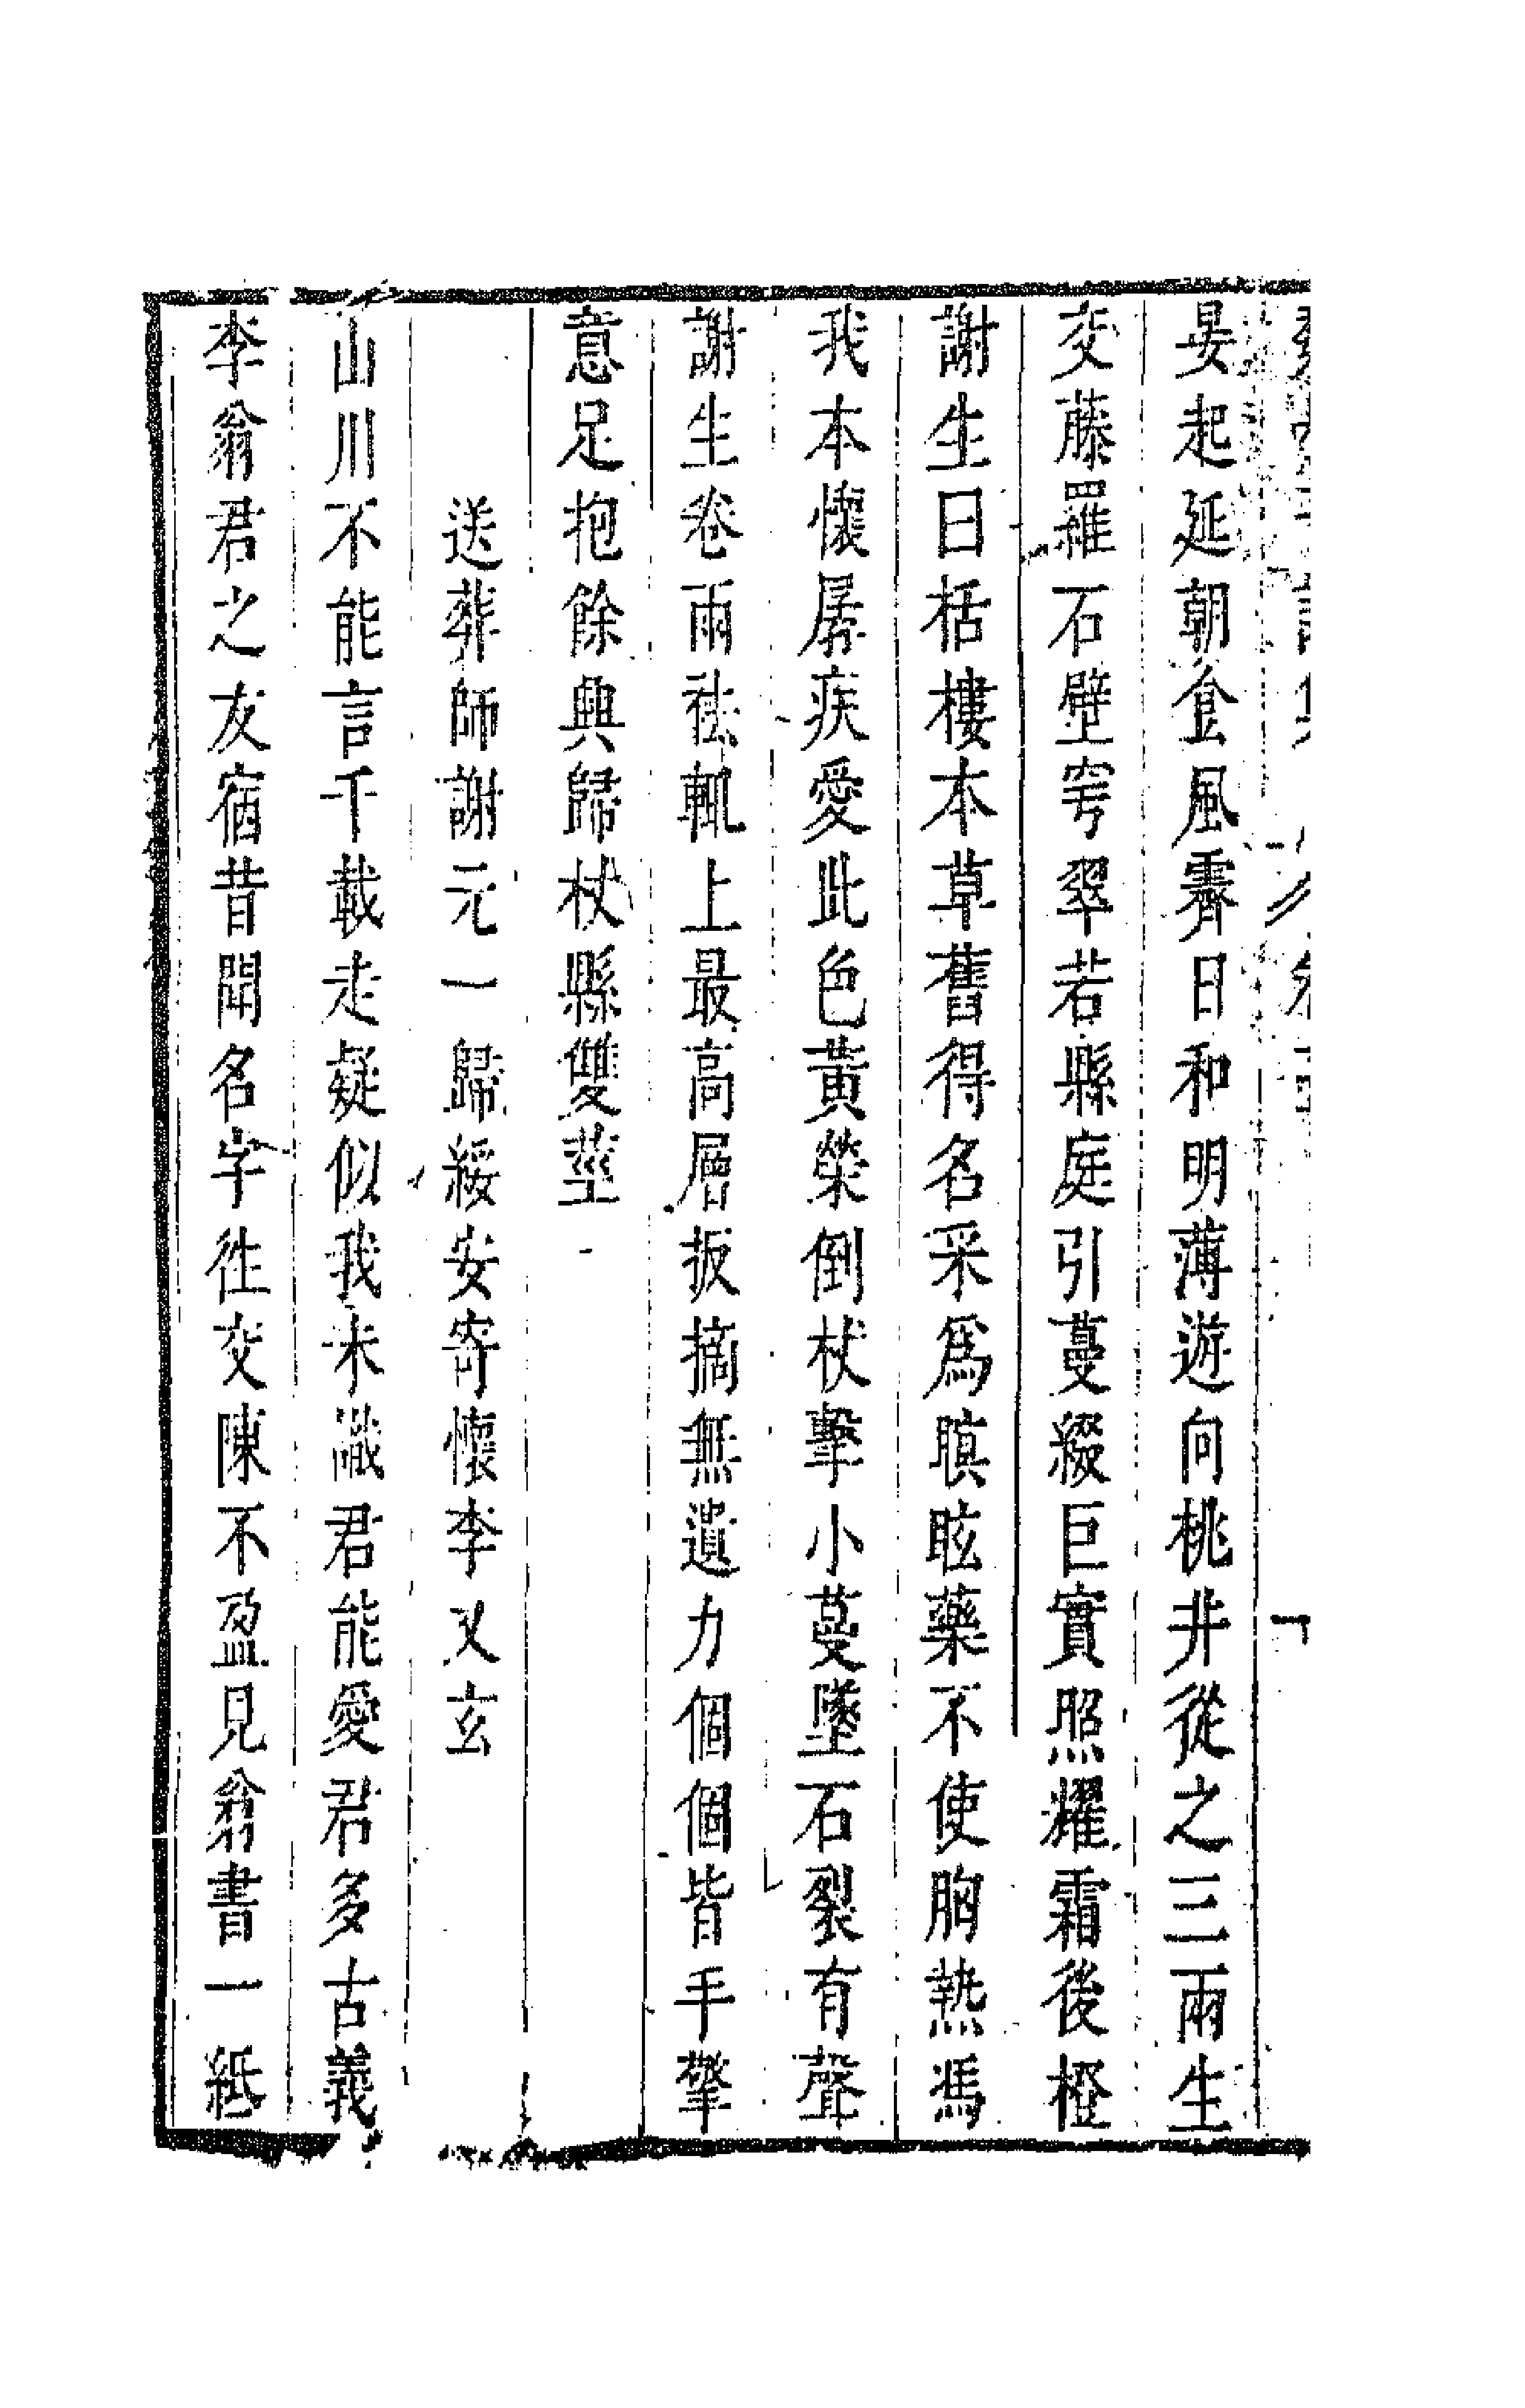 晏起延朝食風霽日和明薄遊向桃井從之三兩生
交藤羅石壁窄翠若縣庭引蔓綴巨實照耀霜後橙
謝生曰栝樓本草舊得名采爲瞑眩藥不使胸熱馮
我本懷孱疾愛此色黃榮倒杖擊小蔓墜石裂有聲
謝生卷兩袪輒上最高層扳摘無遺力個個皆手擎
意足抱餘興歸杖縣雙莖
送葬師謝元一歸綏安寄懷李又玄
山川不能言千載走疑似我未識君能愛君多古義
李翁君之友宿昔聞名字往交陳不盈見翁書一紙